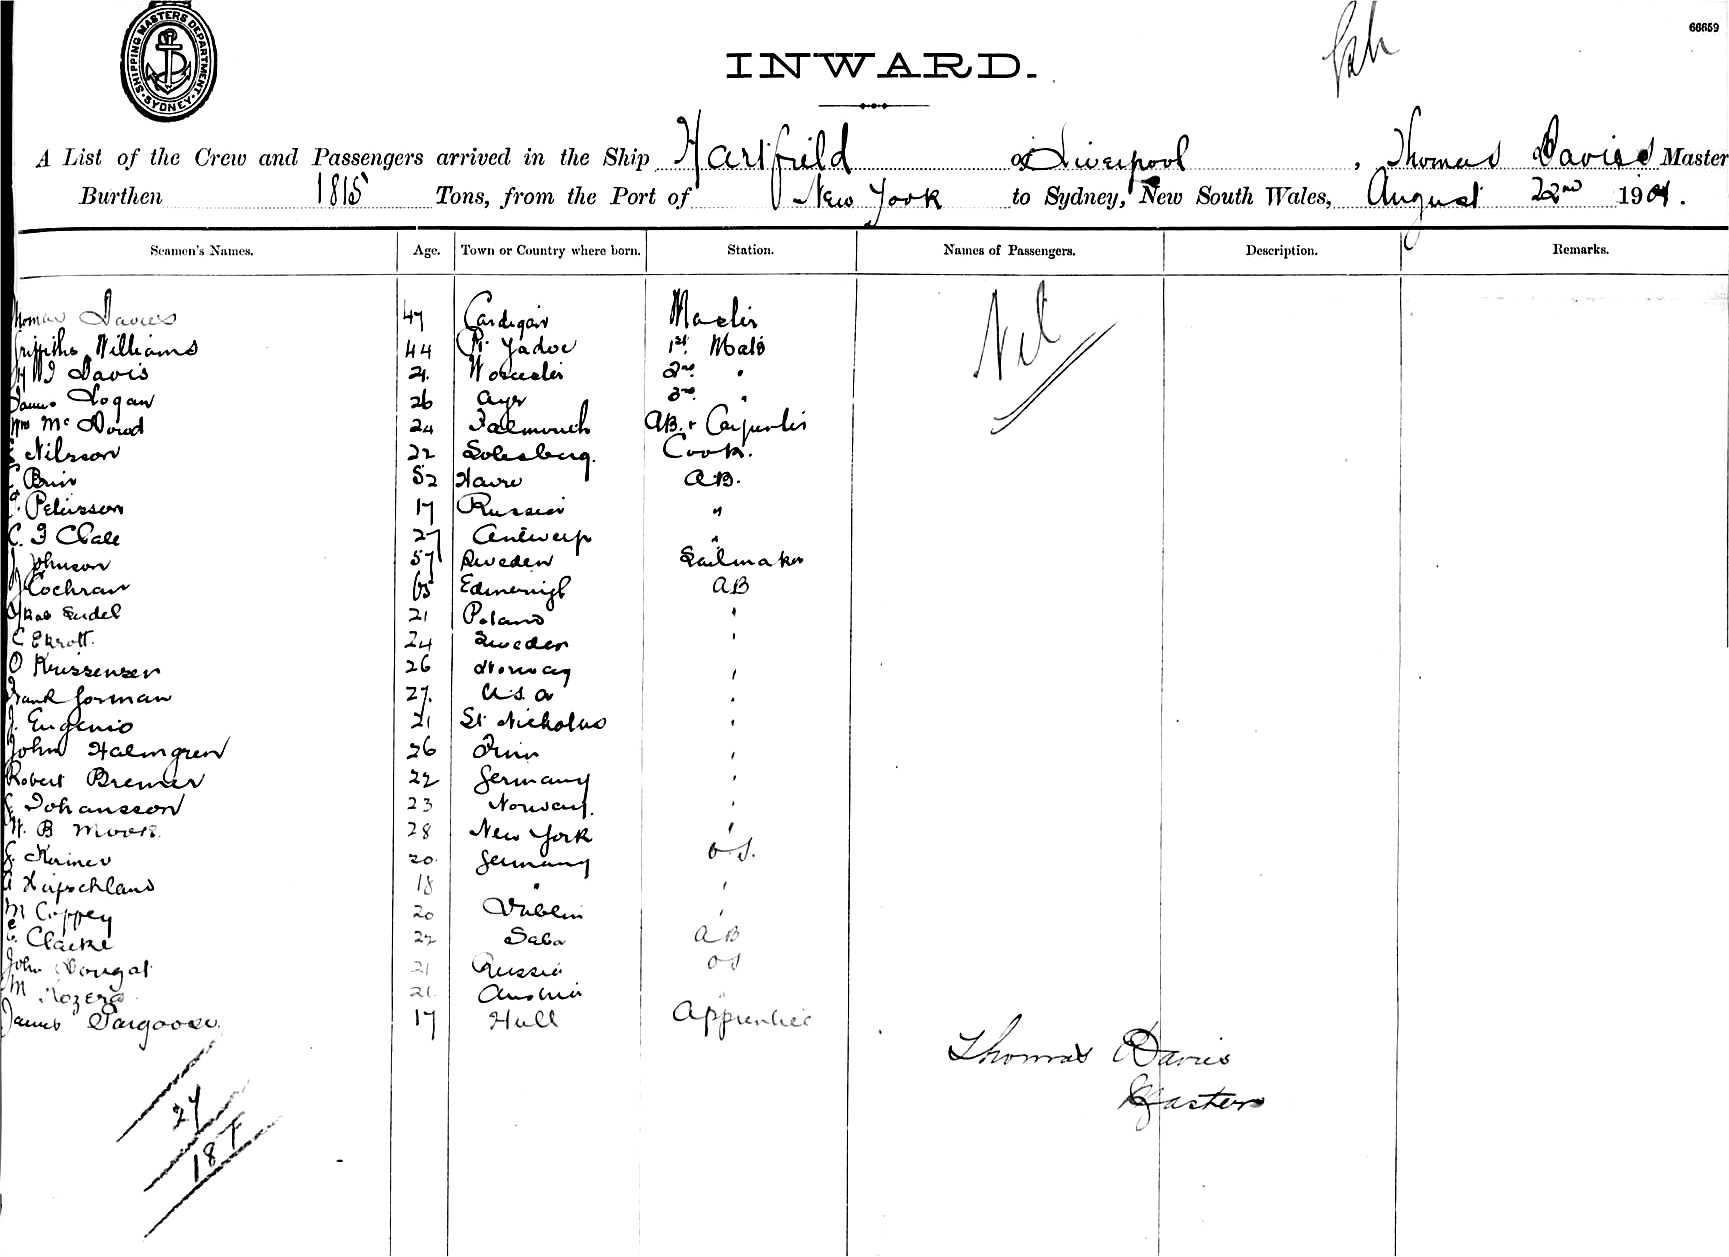 SHIPPING MASTERS DEPARTMENT. SYDNEY.
66659
INWARD.
A List of the Crew and Passengers arrived in the Ship Hartfield of Liverpool, Thomas Davies Master
Burthen 1815 Tons, from the Port of New York to Sydney, New South Wales, August 22nd 1901.
Seamen's Names. Age. Town or Country where born. Station. Names of Passengers. Description. Remarks.
Thomas Davies 47 Cardigan Master Nil
Griffiths Williams 44 Pt. 1st Mate
Davis 21 Worcester 2nd "
James Logan 26 Ayr 3rd "
Wm McDowd 24 Falmouth AB. & Carpenter
Nilsson 22 Solesberg. Cook.
Brin 52 Havre A.B.
Petersson 17 Russia "
C. F 27 Antwerp "
J Johnson 57 Sweden Sailmaker
J Cochran 65 AB
21 Poland "
C Ekrott. 24 Sweden "
O 26 Norway "
Frank Gorman 27. U.S.a "
J. Eugenio 21 St Nicholas "
John Halmgren 26 Finn "
Robert Bremer 22 Germany "
Johansson 23 Norway. "
W. B Moore. 28 New York "
20. Germany O S.
Hirschland 18 " "
M Coppey 20 Dublin "
C. Clarke 22 Saba AB
John Dougal 21 Russia OS
M 21. Austria "
James 17 Hull Apprentice
Thomas Davies
Master
27
18 F